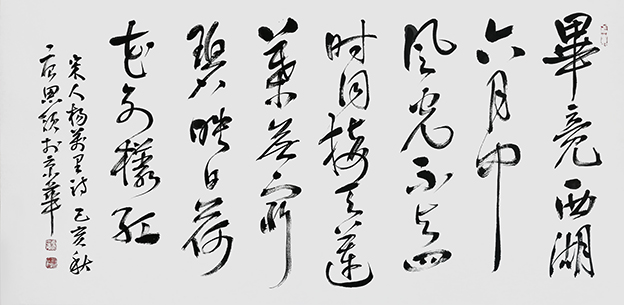 畢竟西湖
六月中
風光不与四
时同接天蓮
葉無窮
碧映日荷
花别樣紅
宋人楊萬里诗 己亥秋
於京華